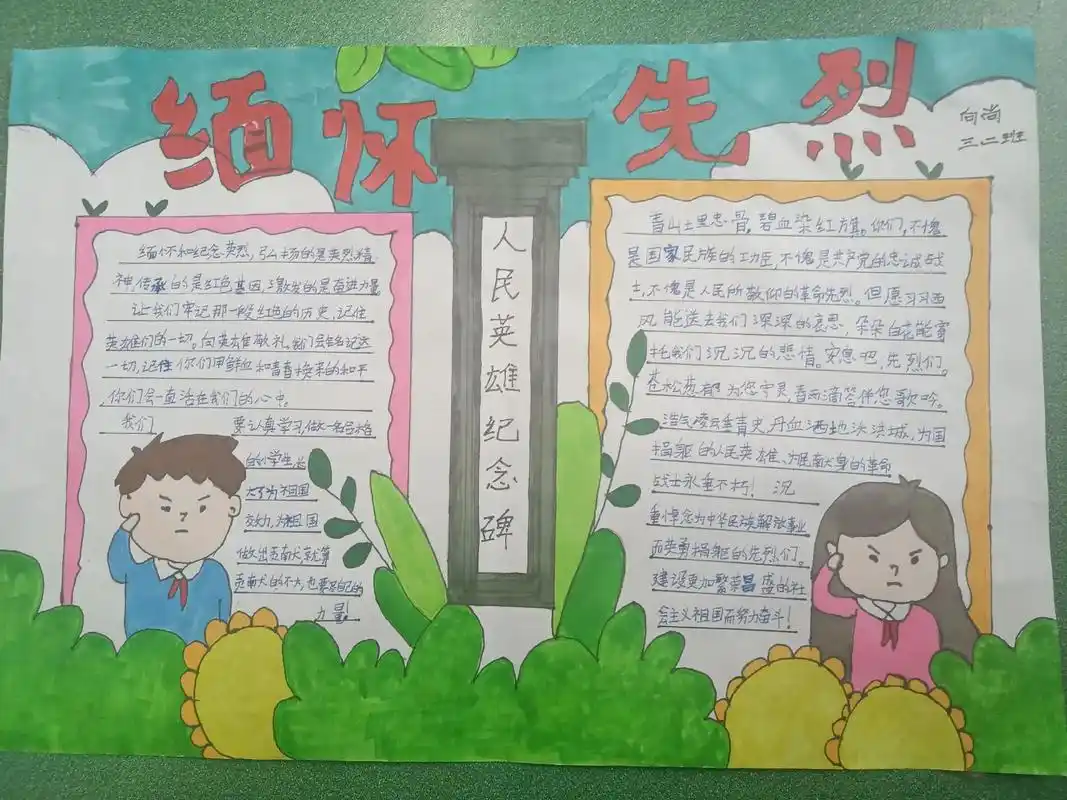 缅怀先烈
向尚
三.二班
人民英雄纪念碑
缅怀和纪念英烈，弘扬的是英烈精
神，传承的是红色基因，激发的是奋进力量。
让我们牢记那一段红色的历史，记住
英雄们的一切。向英雄敬礼，我们会铭记这
一切，记住你们用鲜血和青春换来的和平
你们会一直活在我们的心中。
我们 要认真学习，做一名合格
的小学生，长
大了为祖国
效力，为祖国
做出贡献就算
贡献的不大，也要尽自己的
力量。
青山土里忠骨，碧血染红旗。你们，不愧
是国家民族的功臣，不愧是共产党的忠诚战
士，不愧是人民所敬仰的革命先烈。但愿习习西
风能送去我们深深的哀思，朵朵白花能寄
托我们沉沉的悲情。安息吧，先烈们。
苍松葱郁为您守灵，春雨滴答伴您歌吟。
浩气凌云垂青史，丹血洒地沃洪城，为国
捐躯的人民英雄、为民献身的革命
战士永垂不朽！沉
重悼念为中华民族解放事业
而英勇捐躯的先烈们。
建设更加繁荣昌盛的社
会主义祖国而努力奋斗！